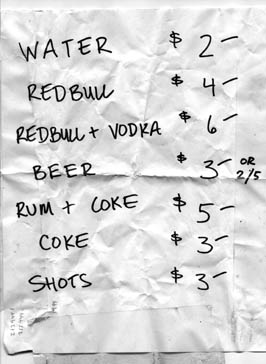 WATER $ 2-
REDBULL $ 4-
REDBULL + VODKA $ 6-
BEER $ 3- OR 2/5
RUM + COKE $ 5-
COKE $ 3-
SHOTS $ 3-